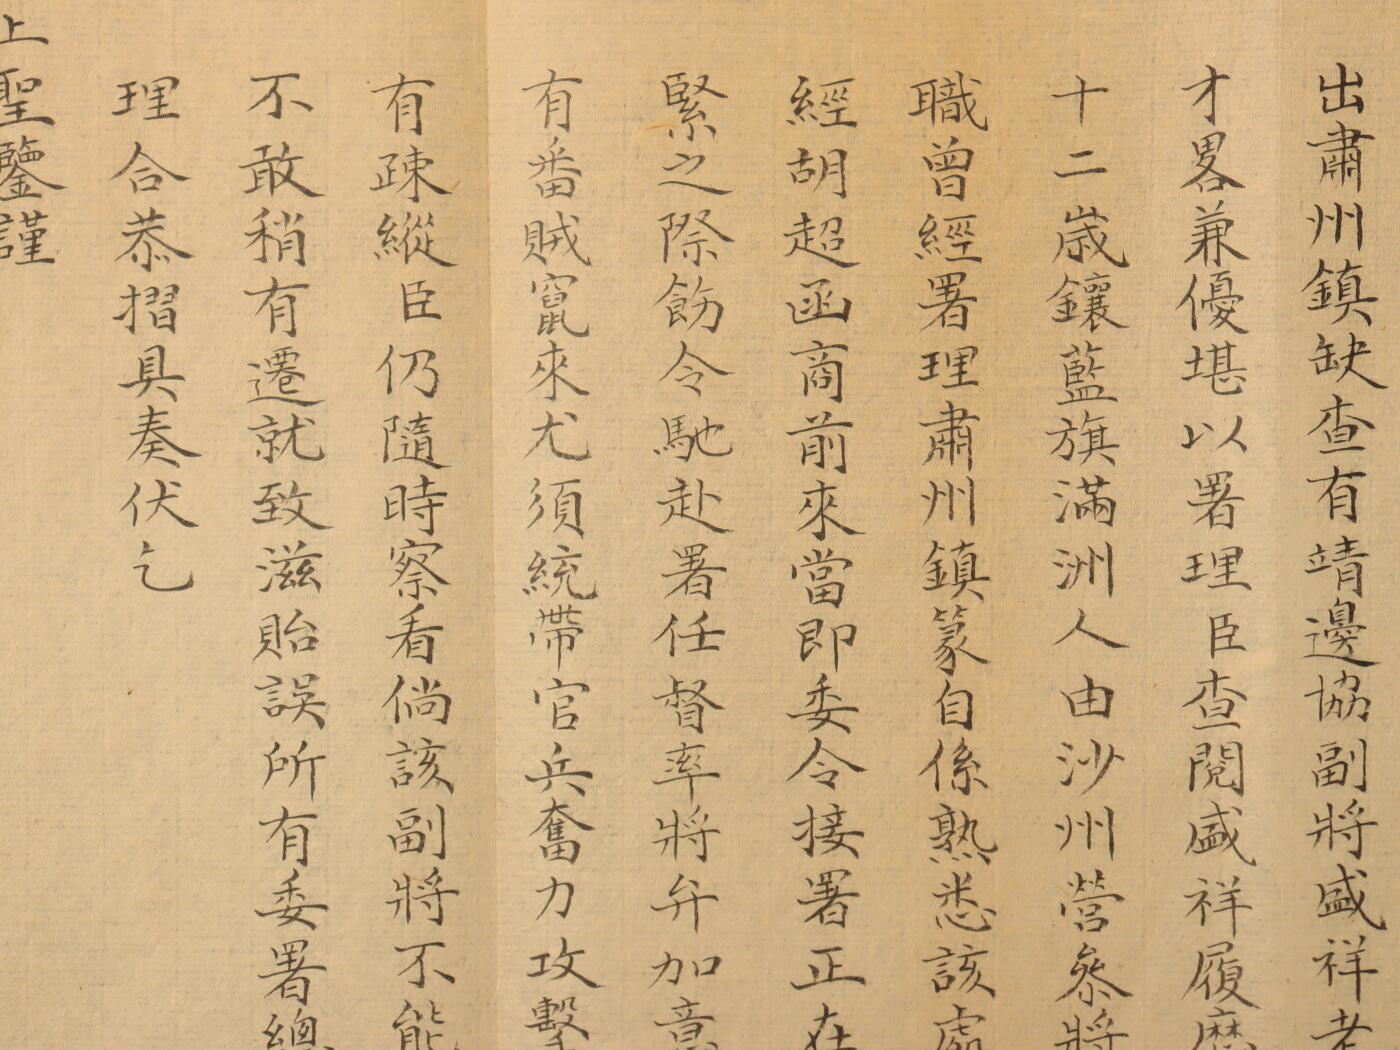 出肅州鎮缺查有靖邊協副將盛祥老
才畧兼優堪以署理臣查閱盛祥履歷
十二歲鑲藍旗滿洲人由沙州營叅將
職曾經署理肅州鎮篆自係熟悉該處
經胡超函商前來當即委令接署正在
緊之際飭令馳赴署任督率將弁加意
有番賊竄來尤須統帶官兵奮力攻擊
有疎縱臣仍隨時察看倘該副將不能
不敢稍有遷就致滋貽誤所有委署總
理合恭摺具奏伏乞
上聖鑒謹